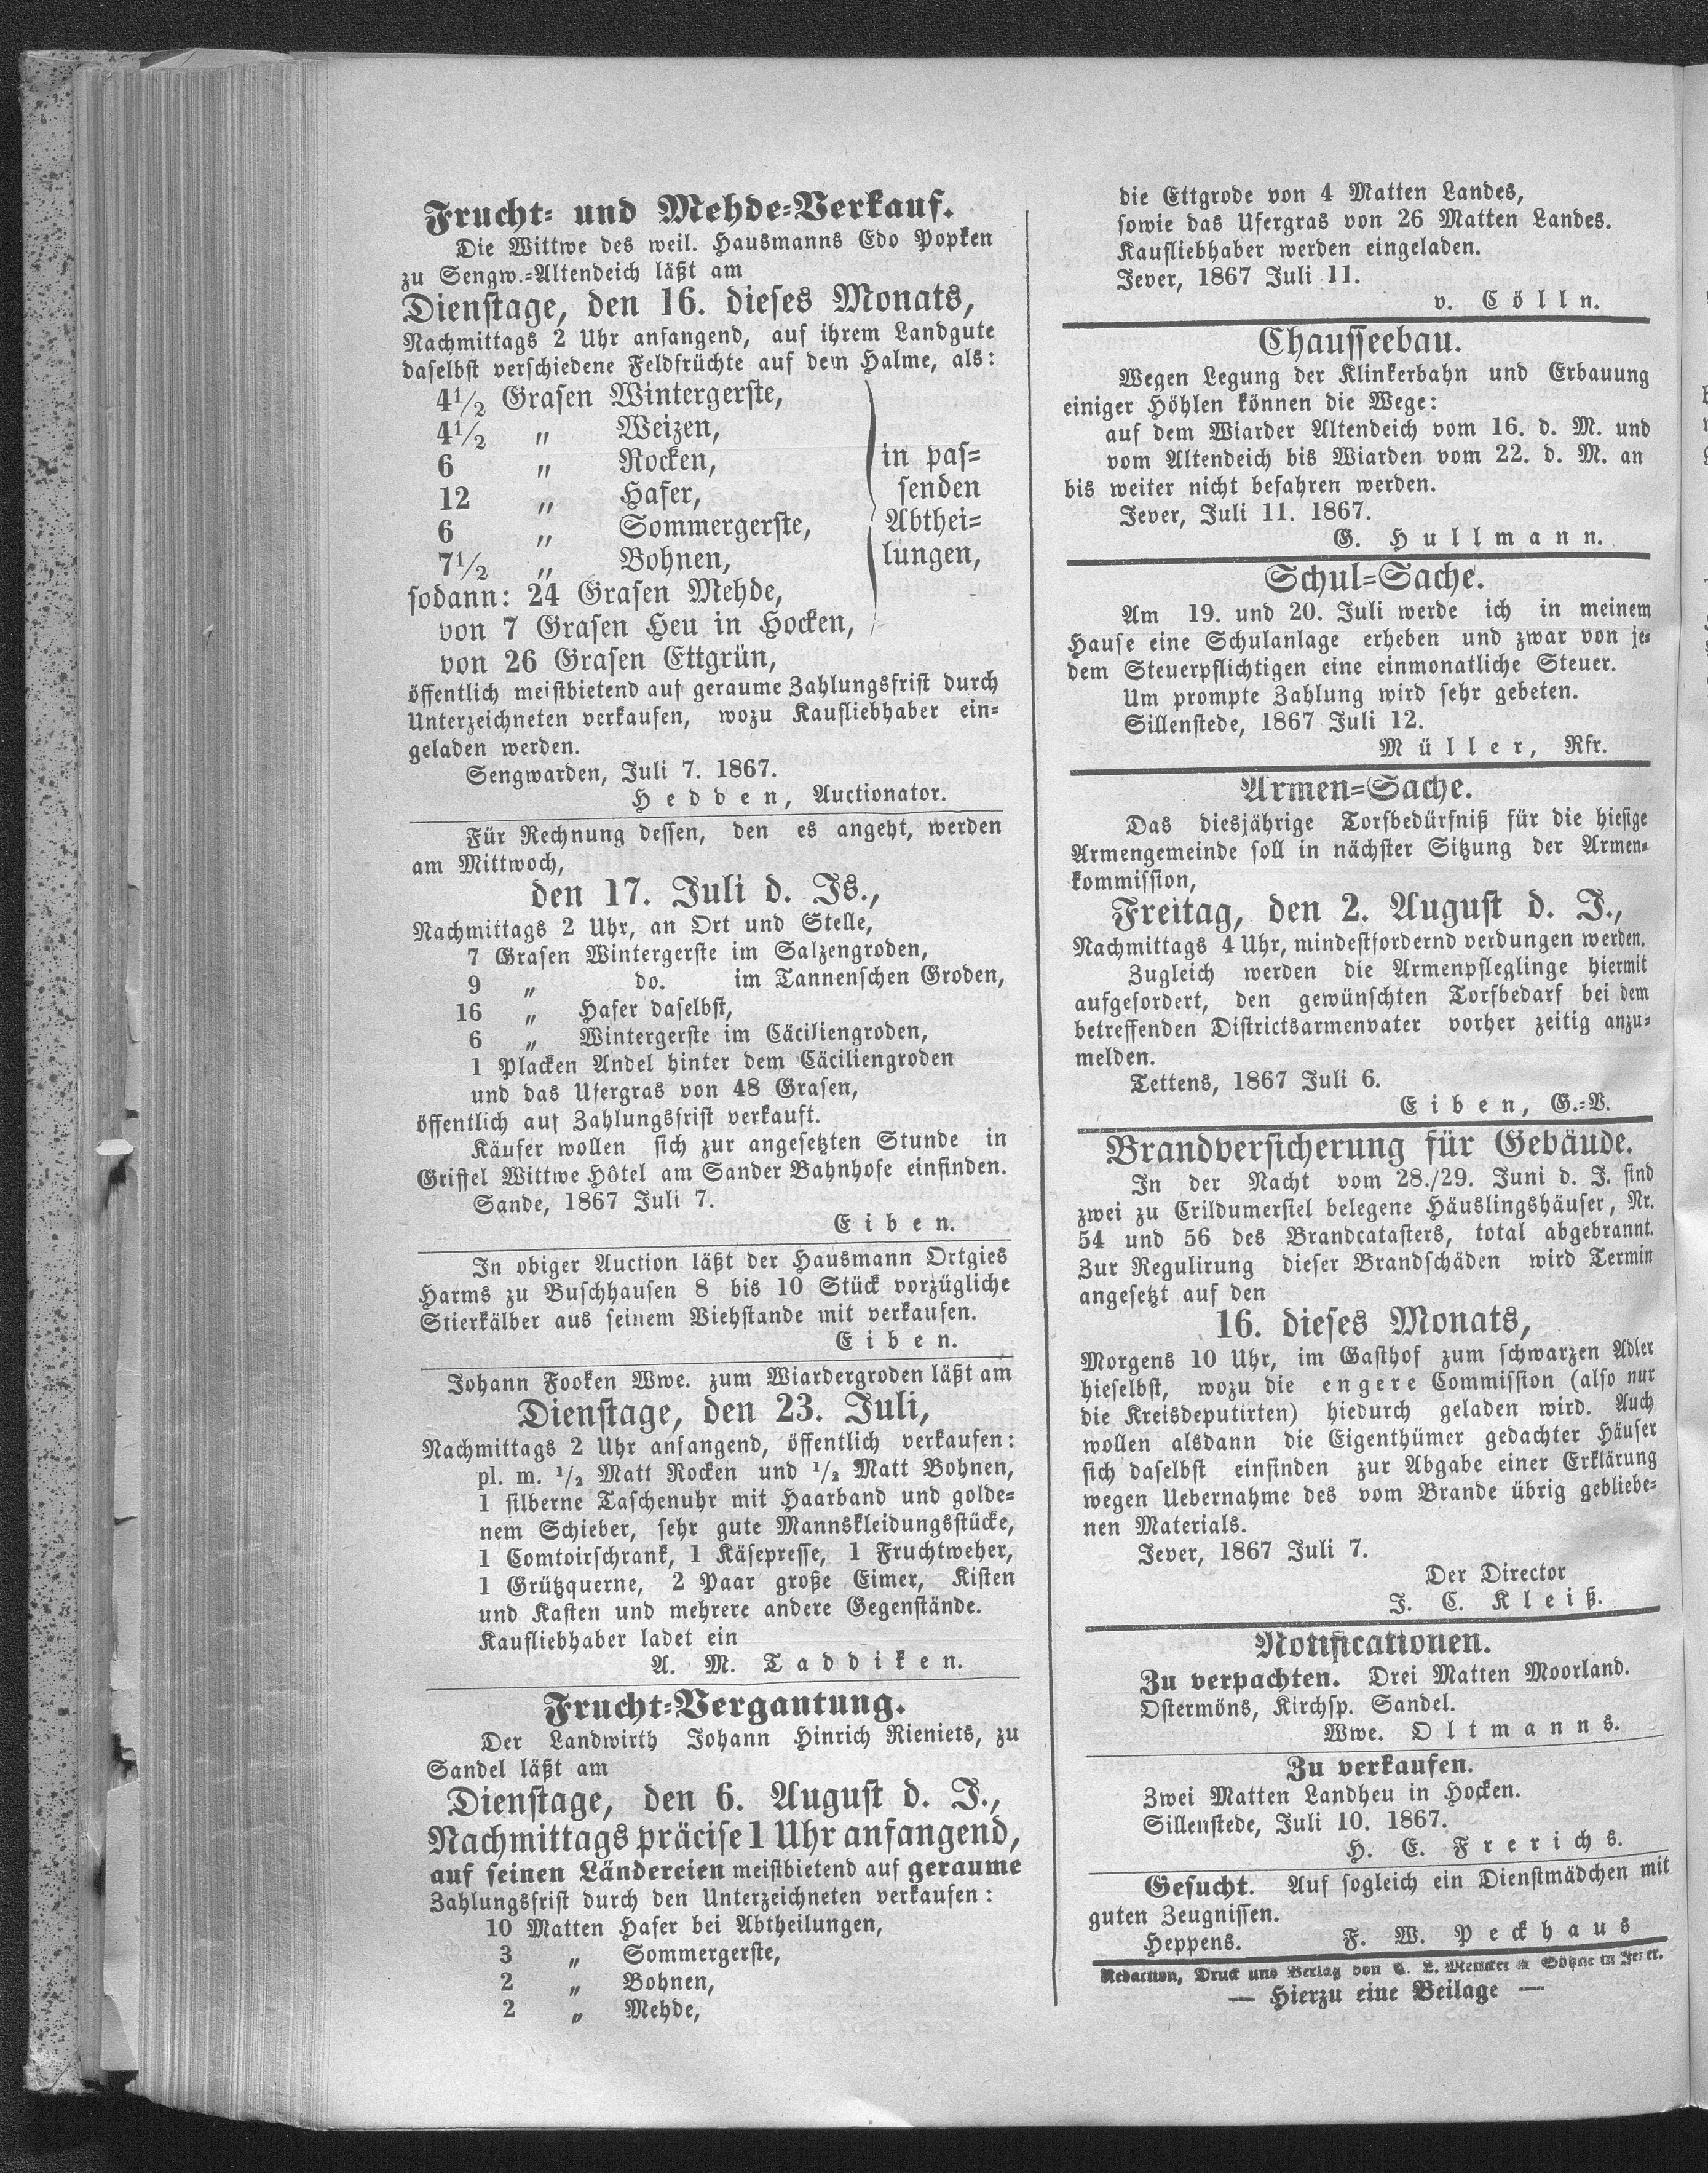 Frucht- und Mehde-Verkauf.
Die Wittwe des weil. Hausmanns Edo Popken
zu Sengw.-Altendeich läßt am
Dienstage, den 16. dieses Monats,
Nachmittags 2 Uhr anfangend, auf ihrem Landgute
daselbst verschiedene Feldfrüchte auf dem Halme, als:
4 1/2 Grasen Wintergerste,
4 1/2 „ Weizen,
6 „ Rocken, in pas-
12 „ Hafer, senden
6 „ Sommergerste, Abthei-
7 1/2 „ Bohnen, lungen,
sodann: 24 Grasen Mehde,
von 7 Grasen Heu in Hocken,
von 26 Grasen Ettgrün,
öffentlich meistbietend auf geraume Zahlungsfrist durch
Unterzeichneten verkaufen, wozu Kaufliebhaber ein-
geladen werden.
Sengwarden, Juli 7. 1867.
Hedden, Auctionator.
Für Rechnung dessen, den es angeht, werden
am Mittwoch,
den 17. Juli d. Js.,
Nachmittags 2 Uhr, an Ort und Stelle,
7 Grasen Wintergerste im Salzengroden,
9 „ do. im Tannenschen Groden,
16 „ Hafer daselbst,
6 „ Wintergerste im Cäciliengroden,
1 Placken Andel hinter dem Cäciliengroden
und das Ufergras von 48 Grasen,
öffentlich auf Zahlungsfrist verkauft.
Käufer wollen sich zur angesetzten Stunde in
Griffel Wittwe Hôtel am Sander Bahnhofe einfinden.
Sande, 1867 Juli 7.
Eiben.
In obiger Auction läßt der Hausmann Ortgies
Harms zu Buschhausen 8 bis 10 Stück vorzügliche
Stierkälber aus seinem Viehstande mit verkaufen.
Eiben.
Johann Fooken Wwe. zum Wiardergroden läßt am
Dienstage, den 23. Juli,
Nachmittags 2 Uhr anfangend, öffentlich verkaufen:
pl. m. 1/2 Matt Rocken und 1/2 Matt Bohnen,
1 silberne Taschenuhr mit Haarband und golde-
nem Schieber, sehr gute Mannskleidungsstücke,
1 Comtoirschrank, 1 Käsepresse, 1 Fruchtweher,
1 Grützquerne, 2 Paar große Eimer, Kisten
und Kasten und mehrere andere Gegenstände.
Kaufliebhaber ladet ein
A. M. Taddiken.
Frucht-Vergantung.
Der Landwirth Johann Hinrich Rieniets, zu
Sandel läßt am
Dienstage, den 6. August d. J.,
Nachmittags präcise 1 Uhr anfangend,
auf seinen Ländereien meistbietend auf geraume
Zahlungsfrist durch den Unterzeichneten verkaufen:
10 Matten Hafer bei Abtheilungen,
3 „ Sommergerste,
2 „ Bohnen,
2 „ Mehde,
die Ettgrode von 4 Matten Landes,
sowie das Ufergras von 26 Matten Landes.
Kaufliebhaber werden eingeladen.
Jever, 1867 Juli 11.
v. Cölln.
Chausseebau.
Wegen Legung der Klinkerbahn und Erbauung
einiger Höhlen können die Wege:
auf dem Wiarder Altendeich vom 16. d. M. und
vom Altendeich bis Wiarden vom 22. d. M. an
bis weiter nicht befahren werden.
Jever, Juli 11. 1867.
G. Hullmann.
Schul-Sache.
Am 19. und 20. Juli werde ich in meinem
Hause eine Schulanlage erheben und zwar von je-
dem Steuerpflichtigen eine einmonatliche Steuer.
Um prompte Zahlung wird sehr gebeten.
Sillenstede, 1867 Juli 12.
Müller, Rfr.
Armen-Sache.
Das diesjährige Torfbedürfniß für die hiesige
Armengemeinde soll in nächster Sitzung der Armen-
kommission,
Freitag, den 2. August d. J.,
Nachmittags 4 Uhr, mindestfordernd verdungen werden.
Zugleich werden die Armenpfleglinge hiermit
aufgefordert, den gewünschten Torfbedarf bei dem
betreffenden Districtsarmenvater vorher zeitig anzu-
melden.
Tettens, 1867 Juli 6.
Eiben, G.-V.
Brandversicherung für Gebäude.
In der Nacht vom 28./29. Juni d. J. sind
zwei zu Crildumersiel belegene Häuslingshäuser, Nr.
54 und 56 des Brandcatasters, total abgebrannt.
Zur Regulirung dieser Brandschäden wird Termin
angesetzt auf den
16. dieses Monats,
Morgens 10 Uhr, im Gasthof zum schwarzen Adler
hieselbst, wozu die engere Commission (also nur
die Kreisdeputirten) hiedurch geladen wird. Auch
wollen alsdann die Eigenthümer gedachter Häuser
sich daselbst einfinden zur Abgabe einer Erklärung
wegen Uebernahme des vom Brande übrig gebliebe-
nen Materials.
Jever, 1867 Juli 7.
Der Director
J. C. Kleiß.
Notificationen.
Zu verpachten. Drei Matten Moorland.
Ostermöns, Kirchsp. Sandel.
Wwe. Oltmanns.
Zu verkaufen.
Zwei Matten Landheu in Hocken.
Sillenstede, Juli 10. 1867.
H. E. Frerichs.
Gesucht. Auf sogleich ein Dienstmädchen mit
guten Zeugnissen.
Heppens. F. W. Peckhaus
Redaction, Druck und Verlag von C. L. Mettcker & Söhne in Jever.
— Hierzu eine Beilage —